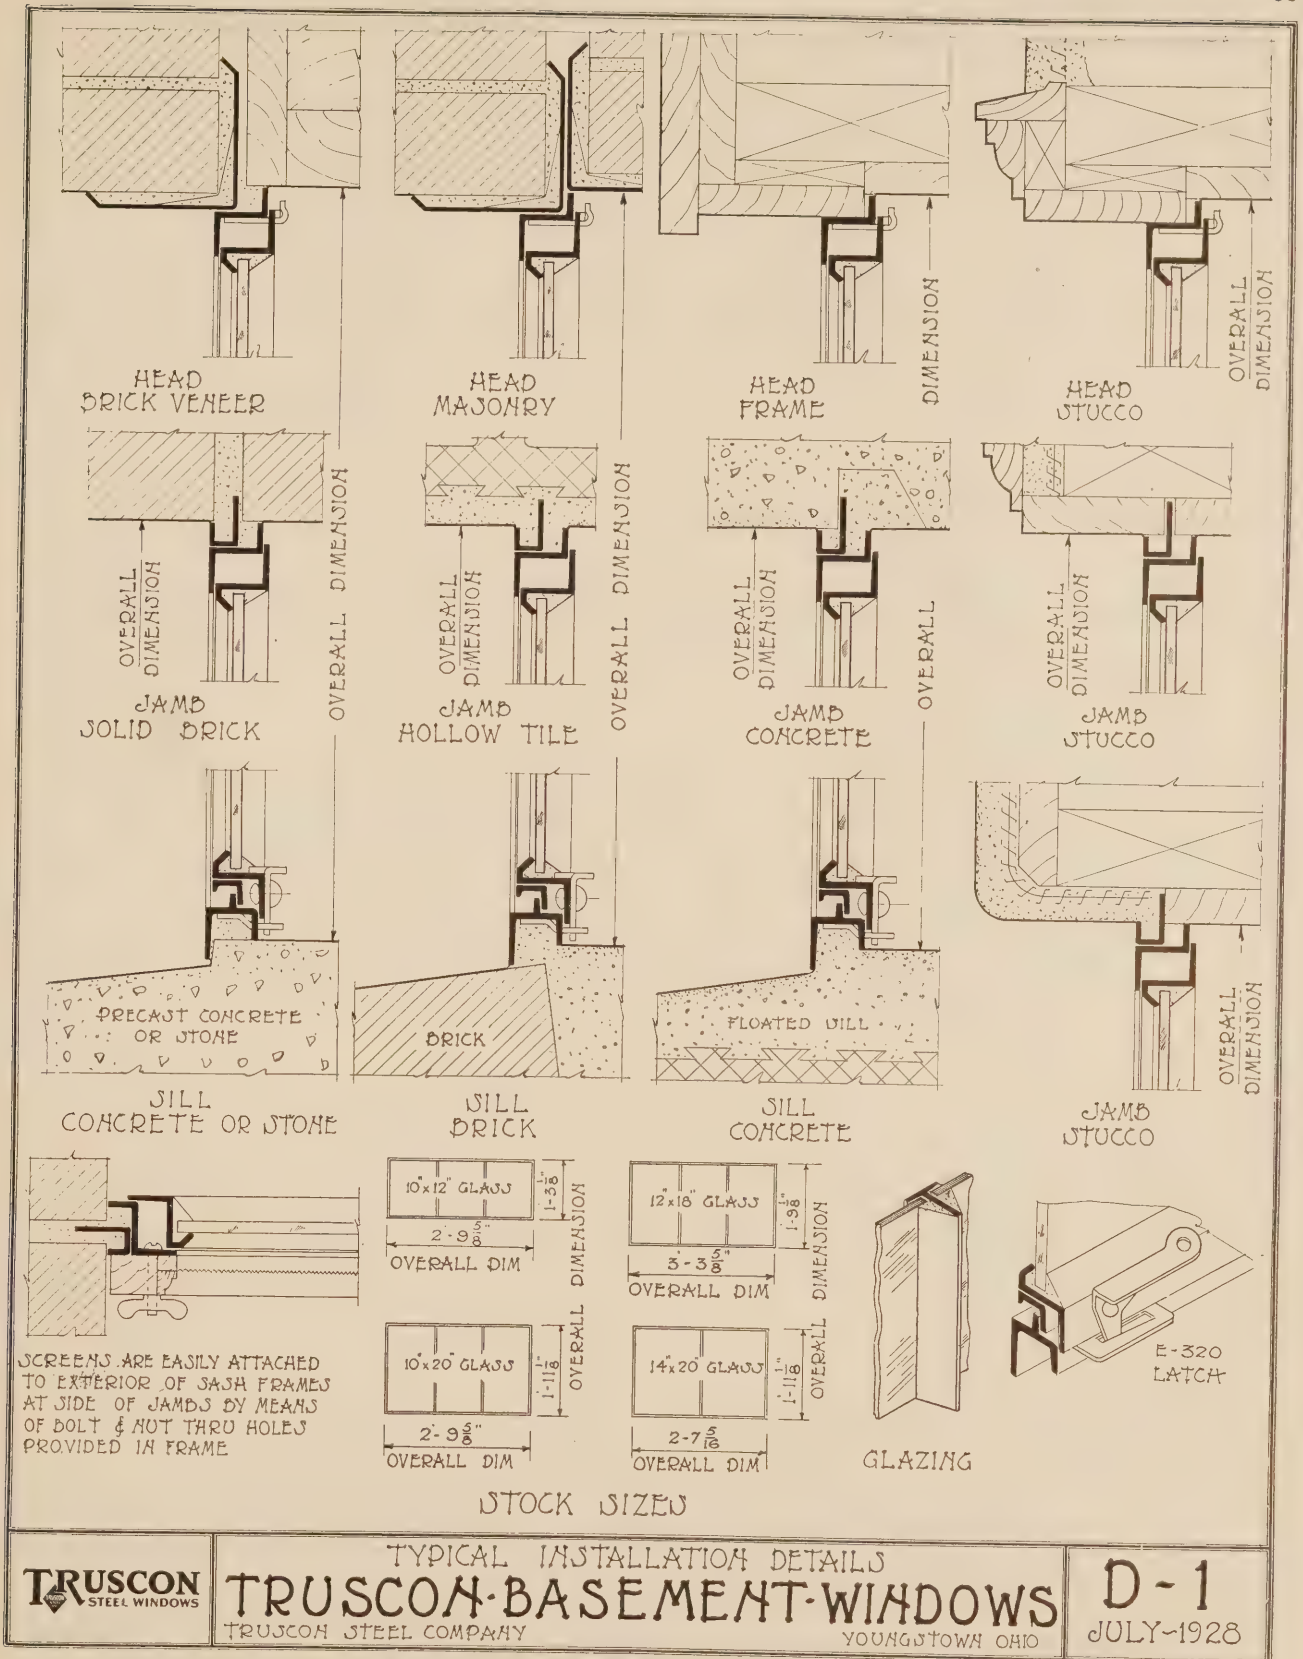 HEAD
BRICK VENEER
HEAD
MASONRY
HEAD
FRAME
DIMENSION
HEAD
STUCCO
OVERALL
DIMENSION
OVERALL
DIMENSION
JAMB
SOLID BRICK
OVERALL DIMENSION
OVERALL
DIMENSION
JAMB
HOLLOW TILE
OVERALL DIMENSION
OVERALL
DIMENSION
JAMB
CONCRETE
OVERALL
OVERALL
DIMENSION
JAMB
STUCCO
PRECAST CONCRETE
OR STONE
SILL
CONCRETE OR STONE
BRICK
SILL
BRICK
FLOATED SILL
SILL
CONCRETE
OVERALL
DIMENSION
JAMB
STUCCO
SCREENS ARE EASILY ATTACHED
TO EXTERIOR OF SASH FRAMES
AT SIDE OF JAMBS BY MEANS
OF BOLT & NUT THRU HOLES
PROVIDED IN FRAME
10"x12" GLASS
2'-9 5/8"
OVERALL DIM
OVERALL DIMENSION
12"x18" GLASS
3'-3 5/8"
OVERALL DIM
OVERALL DIMENSION
10"x20" GLASS
1'-11 1/8"
2'-9 5/8"
OVERALL DIM
14"x20" GLASS
1'-11 1/8"
2-7 5/16
OVERALL DIM
GLAZING
E-320
LATCH
STOCK SIZES
TRUSCON
STEEL WINDOWS
TYPICAL INSTALLATION DETAILS
TRUSCON·BASEMENT·WINDOWS
TRUSCON STEEL COMPANY
YOUNGSTOWN OHIO
D-1
JULY~1928